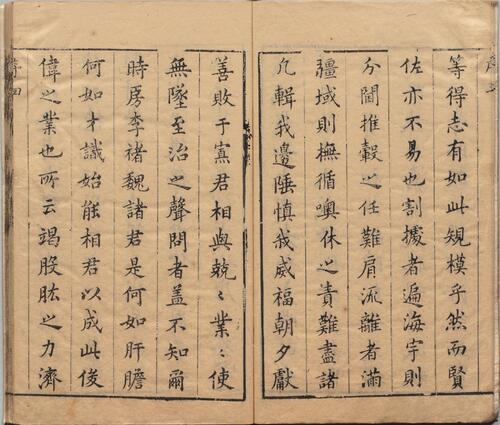 等得志有如此規模乎然而賢
佐亦不易也割據者遍海宇則
分閫推轂之任難肩流離者滿
疆域則撫循噢休之責難盡諸
凡輯我邊陲慎我威福朝夕獻
善敗于寡君相與兢〻業〻使
無墜至治之聲問者盖不知爾
時房李褚魏諸君是何如肝膽
何如才識始能相君以成此俊
偉之業也所云竭股肱之力濟
序四